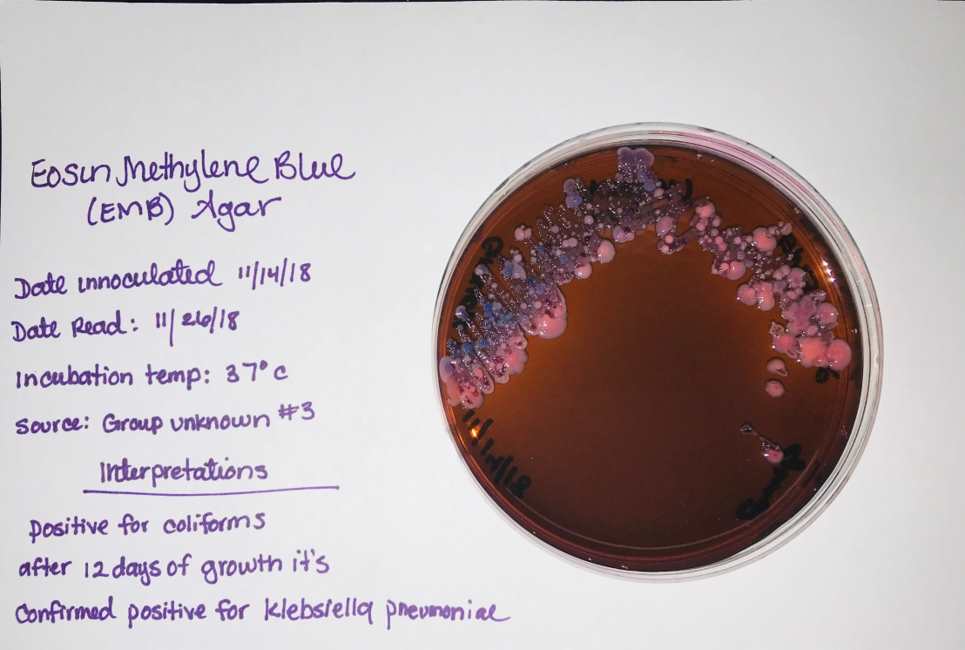 Eosin Methylene Blue
(EMB) Agar
Date innoculated 11/14/18
Date Read: 11/26/18
Incubation temp: 37°c
Source: Group unknown #3
Interpretations
positive for coliforms
after 12 days of growth it's
Confirmed positive for Klebsiella pneumoniae